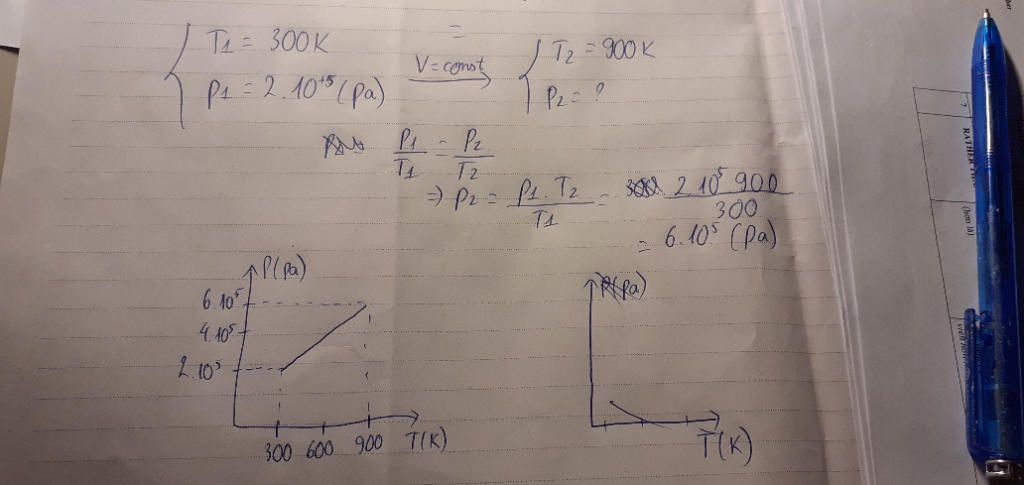 T1 = 300K
P1 = 2.10⁺⁵ (Pa)
=
V = const
T2 = 900K
P2 = ?
P1/T1 = P2/T2
⇒ P2 = P1 . T2 / T1 = 2 10⁵ 900 / 300
= 6.10⁵ (Pa)
P(Pa)
6.10⁵
4.10⁵
2.10⁵
300 600 900 T(K)
(Pa)
T(K)
7
RATHER